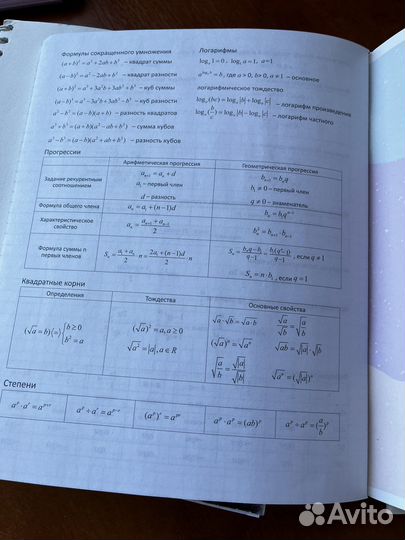 Формулы сокращенного умножения
(a+b)² = a² + 2ab + b² – квадрат суммы
(a−b)² = a² − 2ab + b² – квадрат разности
(a+b)³ = a³ + 3a²b + 3ab² + b³ – куб суммы
(a−b)³ = a³ − 3a²b + 3ab² − b³ – куб разности
a² − b² = (a−b)(a+b) – разность квадратов
a³ + b³ = (a+b)(a² − ab + b²) – сумма кубов
a³ − b³ = (a−b)(a² + ab + b²) – разность кубов
Логарифмы
logₐ 1 = 0, logₐ a = 1, a=1
a^(logₐ b) = b, где a > 0, b > 0, a ≠ 1 – основное
логарифмическое тождество
logₐ(bc) = logₐ|b| + logₐ|c| – логарифм произведения
logₐ(b/c) = logₐ|b| − logₐ|c| – логарифм частного
Прогрессии
Арифметическая прогрессия
Геометрическая прогрессия
Задание рекурентным соотношением
aₙ₊₁ = aₙ + d
a₁ – первый член
d – разность
bₙ₊₁ = bₙq
b₁ ≠ 0 – первый член
q ≠ 0 – знаменатель
Формула общего члена
aₙ = a₁ + (n−1)d
bₙ = b₁qⁿ⁻¹
Характеристическое свойство
Формула суммы n первых членов
, если q ≠ 1
, если q = 1
Квадратные корни
Определения
Тождества
Основные свойства
(√a = b)⟨=⟩{b ≥ 0
b² = a
(√a)² = a, a ≥ 0
√a² = |a|, a ∈ R
√a · √b = √a·b
√a/√b = √(a/b)
(√a)ⁿ = √aⁿ
√ab = √|a| · √|b|
√(a/b) = √|a|/√|b|
√aⁿ = (√|a|)ⁿ
Степени
(aᵖ)ʳ = aᵖʳ
aᵖ · aᵖ = (ab)ᵖ
aᵖ ÷ aᵖ = (a/b)ᵖ
Avito